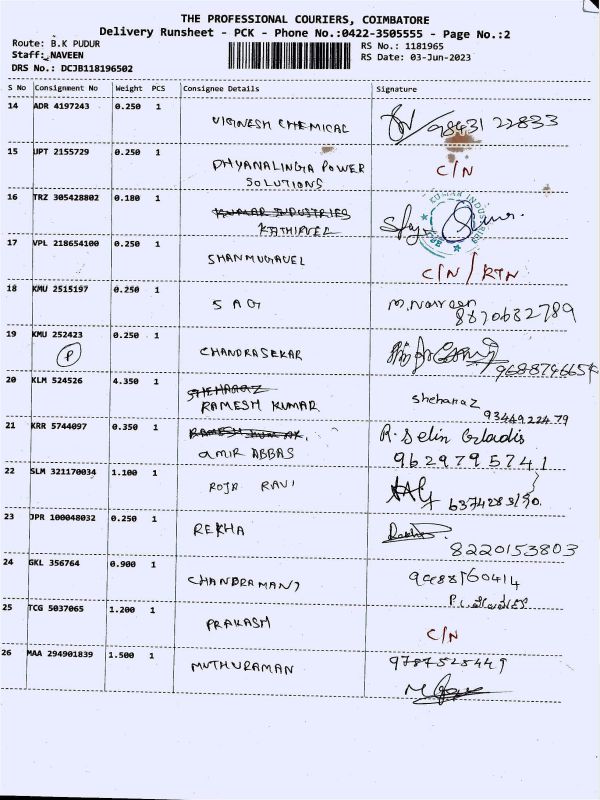 THE PROFESSIONAL COURIERS, COIMBATORE
Delivery Runsheet - PCK - Phone No.:0422-3505555 - Page No.:2
Route: B.K PUDUR
RS No.: 1181965
Staff: NAVEEN
RS Date: 03-Jun-2023
DRS No.: DCJB118196502
S No Consignment No Weight PCS Consignee Details Signature
14 ADR 4197243 0.250 1
VIGNESH CHEMICAL 98431 22833
15 UPT 2155729 0.250 1
DHYANALINGA POWER C/N
SOLUTIONS
16 TRZ 305428802 0.180 1
KUMAR INDUSTRIES
KATHIRVEL
17 VPL 218654100 0.250 1
SHANMUGAVEL
C/N / RTN
18 KMU 2515197 0.250 1
S A G M. Naveen
8870632789
19 KMU 252423 0.250 1
P CHANDRASEKAR
9688746654
20 KLM 524526 4.350 1
SHEHARAZ
RAMESH KUMAR shehanaz
9344922479
21 KRR 5744097 0.350 1
RAMESH KUMAR R. Selin Gladis
AMIR ABBAS 9629795741
22 SLM 321170034 1.100 1
ROJA RAVI
23 JPR 100048032 0.250 1
REKHA Rekha
8220153803
24 GKL 356764 0.900 1
CHANDRAMANI
25 TCG 5037065 1.200 1
PRAKASH C/N
26 MAA 294901839 1.500 1
MUTHURAMAN